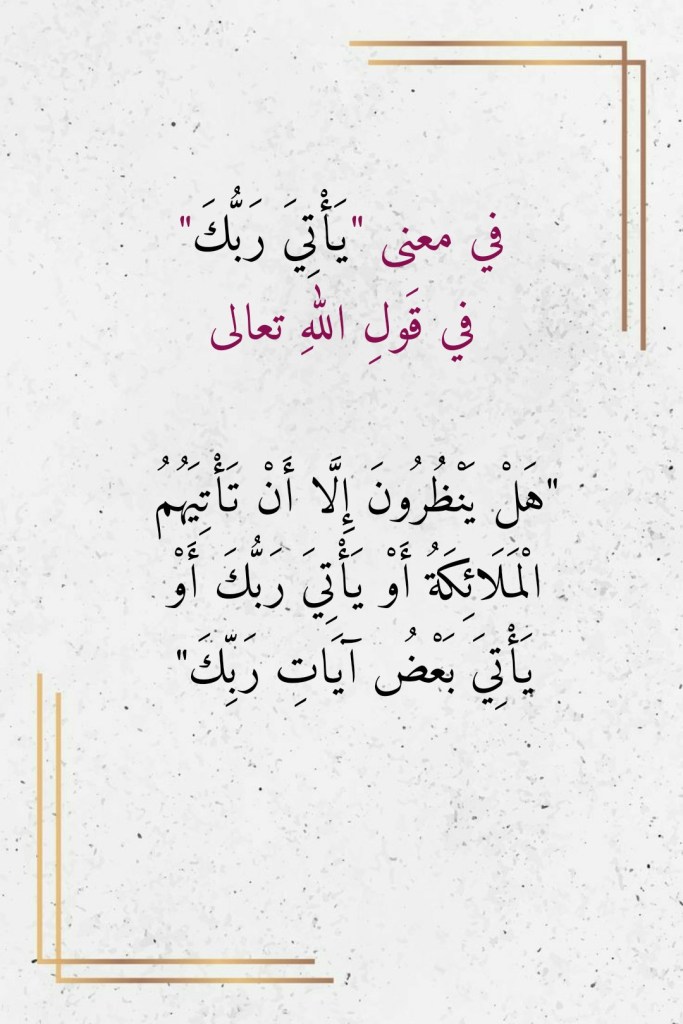 في معنى "يَأْتِيَ رَبُّكَ"
في قَولِ اللهِ تعالى
"هَلْ يَنْظُرُونَ إِلَّا أَنْ تَأْتِيَهُمُ
الْمَلَائِكَةُ أَوْ يَأْتِيَ رَبُّكَ أَوْ
يَأْتِيَ بَعْضُ آيَاتِ رَبِّكَ"